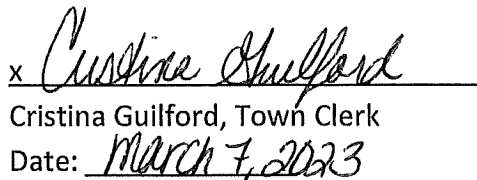 x Cristina Guilford
Cristina Guilford, Town Clerk
Date: March 7, 2023